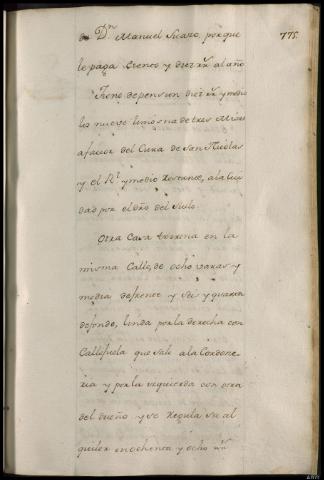 de Dⁿ Manuel Suazo, porque 775.
le paga treinta y diez rˢ al año
Tiene de pension diez rˢ y medio
los nueve limosna de tres Misas
a favor del Cura de San Nicolas
y el Rˡ y medio restante, a la Ciu
dad por el dro del suelo
Otra Casa terrena en la
misma Calle, de ocho varas y
media de frente y seis y quarta
de fondo, linda por la derecha con
Callejuela que sale a la Cordone
ria y por la izquierda con otra
del dueño y se regula su al
quiler en ochenta y ocho rˢ